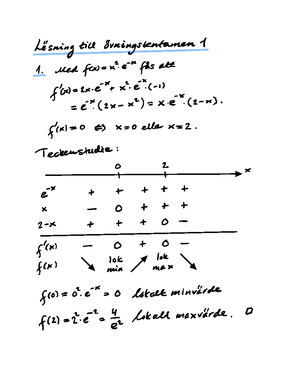 Lösning till övningstentamen 1
1. Med f(x) = x² · e⁻ˣ fås att
f'(x) = 2x · e⁻ˣ + x² · e⁻ˣ · (-1)
= e⁻ˣ · (2x - x²) = x · e⁻ˣ · (2-x).
f'(x) = 0 ⇔ x = 0 eller x = 2.
Teckenstudie:
0 2 x
e⁻ˣ + + + + +
x - 0 + + +
2-x + + + 0 -
f'(x) - 0 + 0 -
f(x) ↘ lok min ↗ lok max ↘
f(0) = 0² · e⁻ˣ = 0 lokalt minvärde
f(2) = 2² · e⁻² = 4/e² lokalt maxvärde. □